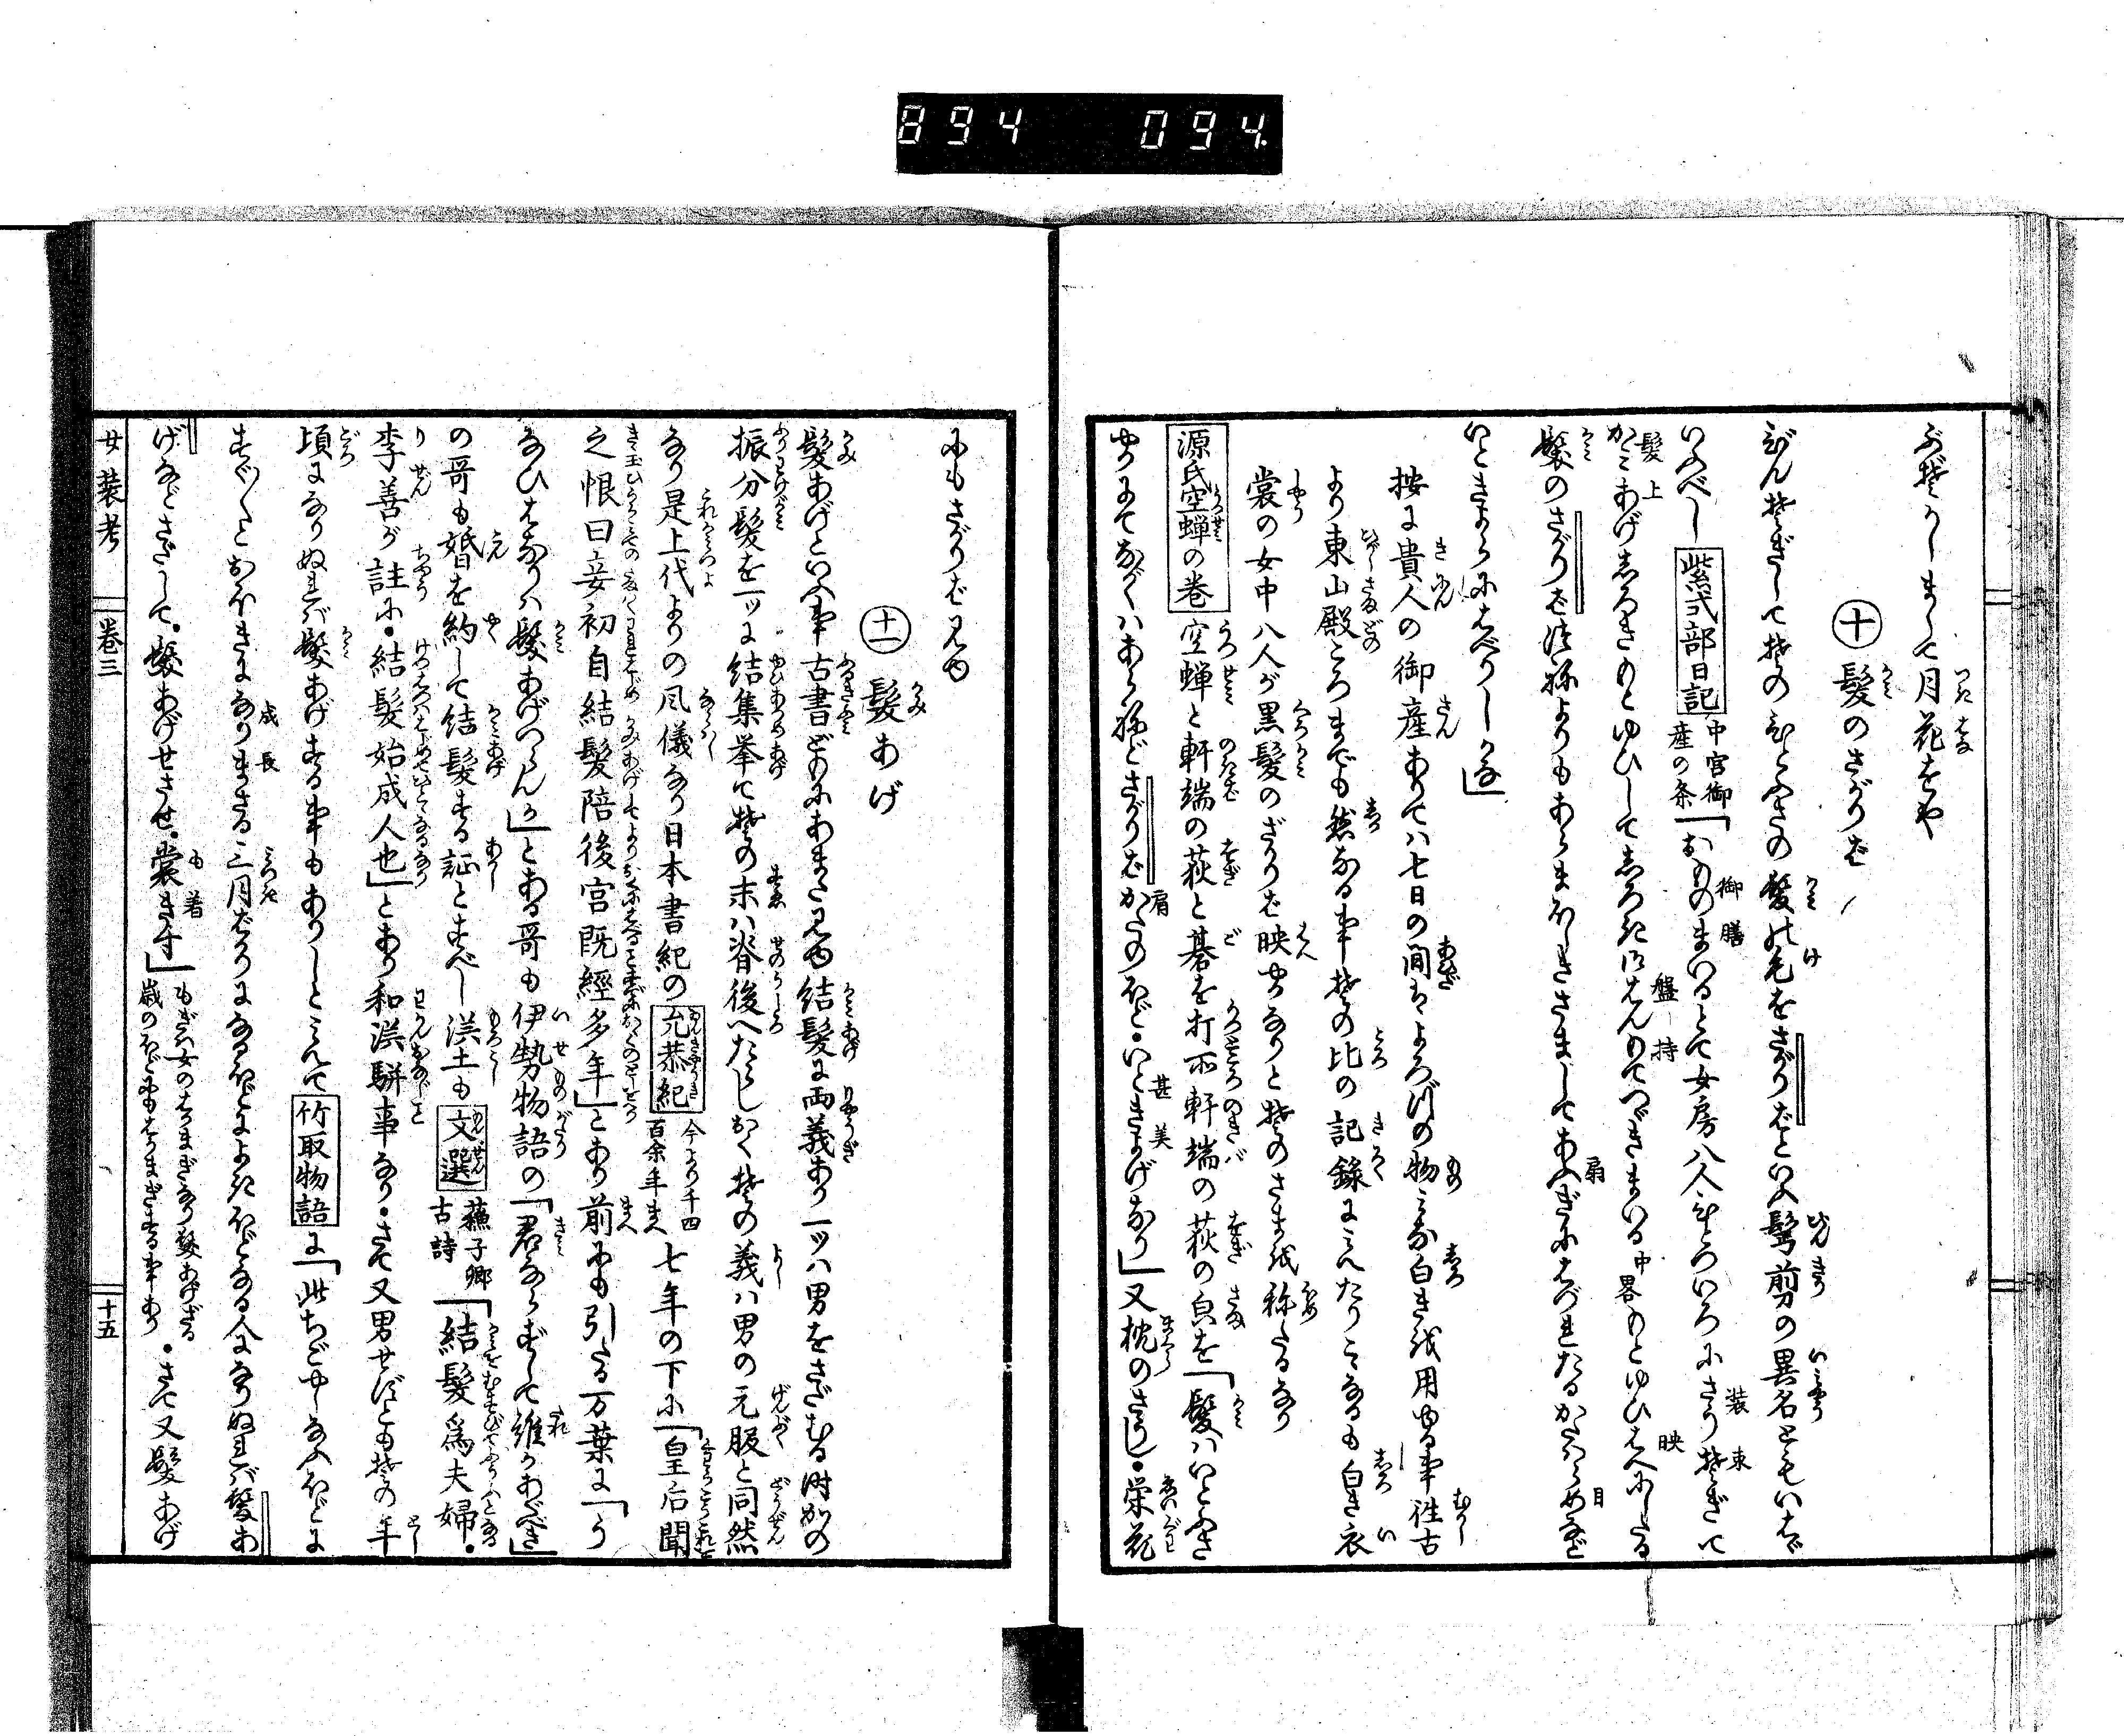 894 094
ぶぞかしまして月花をや
十 髪のさがりば
びんそぎしてそのひとふさの髪の毛をさがりばといふ鬢剪の異名ともいはゞ
いふべし 紫式部日記 中宮御産の条「おものまいるとて女房八人ひとついろにさうぞきて
かみあげしろきもとゆひしてしろき御はんもてつゞきまいる 中畧 もとゆひはへにしたる
髪のさがりば つねよりもあらまほしきさましてあふぎにはづれたるかたはらめなど
いときよらにはべりしかな」
按に貴人の御産ありては七日の間はよろづの物みな白きを用ゆる事往古
より東山殿ころまでも然なる事その比の記録にみえたりこゝなるも白き衣
裳の女中八人が黒髪のさがりば映ゆなりとそのさまを称たるなり
源氏空蝉の巻 空蝉と軒端の荻と碁を打所軒端の荻の皃を「髪はいとふさ
やかにてながくはあらねどさがりばかたのほど・いときよげなり」又枕のさうし・栄花
にもさがりば見ゆ
十一 髪あげ
髪あげといふ事古書どもにあまた見ゆ結髪に両義あり一ツは男をさだむる時かの
振分髪を一ツに結集挙てその末は脊後へたらしおくその義は男の元服と同然
なり是上代よりの風儀なり日本書紀の 允恭紀 今より千四百余年まへ 七年の下に「皇后聞
之恨曰妾初自結髪陪後宮既經多年」とあり前にも引たる万葉に「う
なひはなりは髪あげつらんか」とある哥も伊勢物語の「君ならずして誰かあぐべき」
の哥も婚を約して結髪する証とすべし漢土も 文選 蘇子卿古詩「結髪為夫婦・
李善が註に・結髪始成人也」とあり和漢駢事なり・さて又男せずともその年
頃になりぬれば髪あげする事もありしとみえて 竹取物語 に「此ちごやしなふほどに
すく〳〵とおほきになりまさる三月ばかりになるほどによきほどなる人になりぬれば髪あ
げなどさだして・髪あげせさせ・裳きす」・さて又髪あげ
女装考 巻三 十五